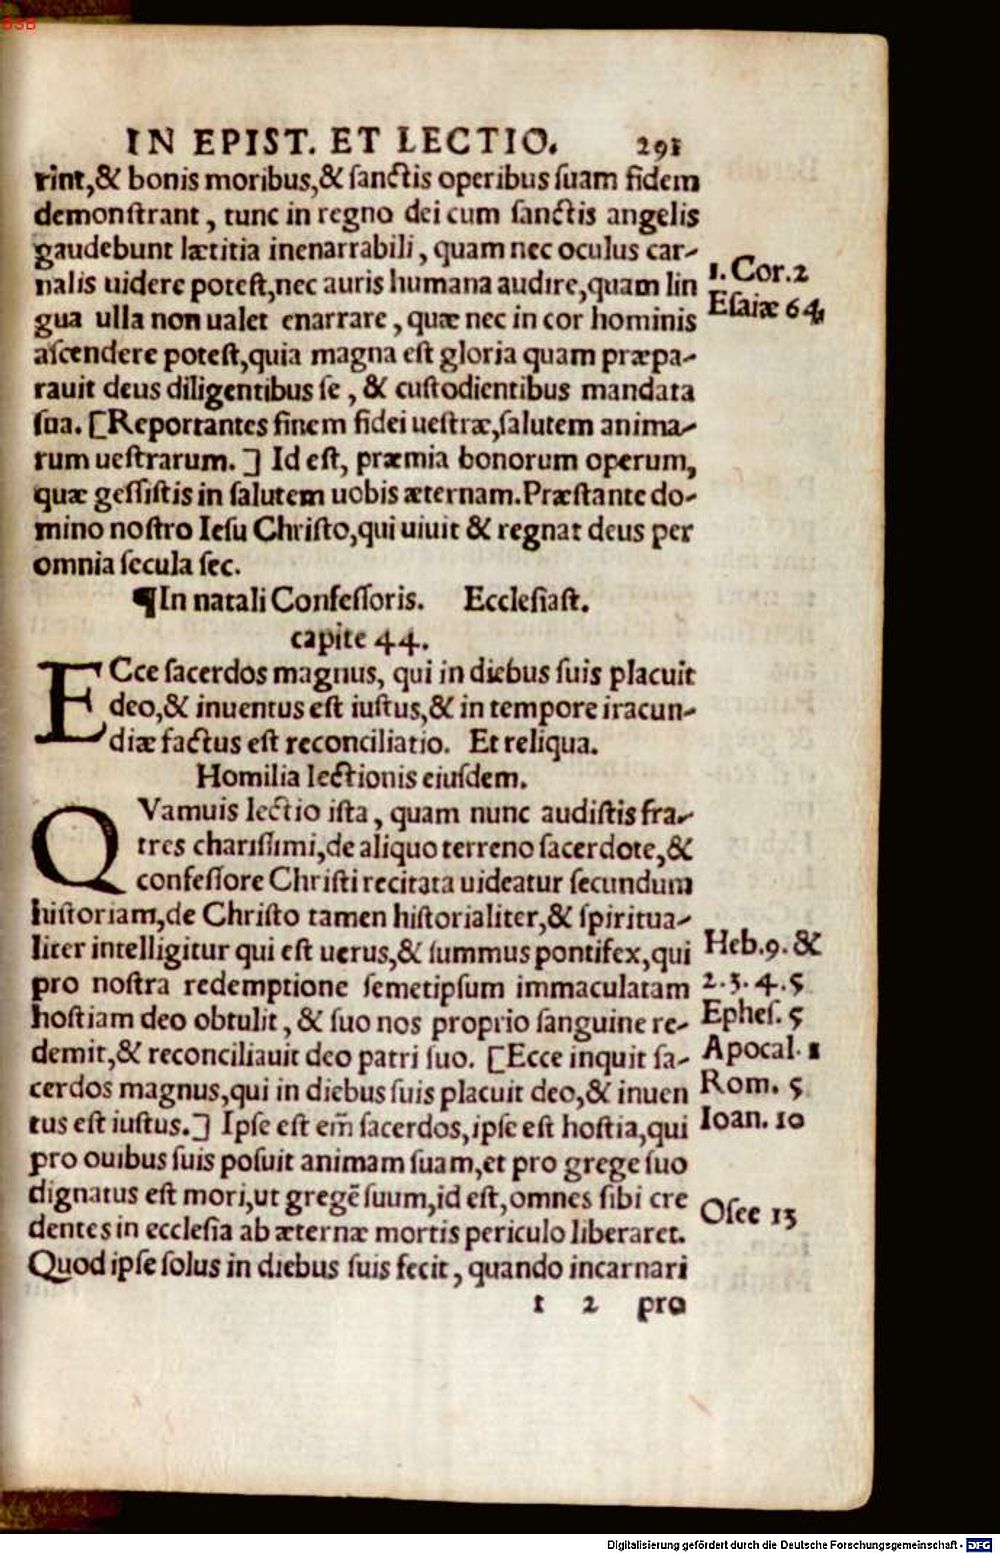 IN EPIST. ET LECTIO. 291
rint,& bonis moribus,& ſanctis operibus ſuam fidem
demonſtrant, tunc in regno dei cum ſanctis angelis
gaudebunt lætitia inenarrabili, quam nec oculus car-
nalis uidere poteſt,nec auris humana audire,quam lin
gua ulla non ualet enarrare, quæ nec in cor hominis
aſcendere poteſt,quia magna eſt gloria quam præpa-
rauit deus diligentibus ſe, & cuſtodientibus mandata
ſua. [Reportantes finem fidei ueſtræ,ſalutem anima-
rum ueſtrarum.] Id eſt, præmia bonorum operum,
quæ geſſiſtis in ſalutem uobis æternam.Præſtante do-
mino noſtro Ieſu Chriſto,qui uiuit & regnat deus per
omnia ſecula ſec.
1. Cor.2
Eſaiæ 64
¶In natali Confeſſoris. Eccleſiaſt.
capite 44.
ECce ſacerdos magnus, qui in diebus ſuis placuit
deo,& inuentus eſt iuſtus,& in tempore iracun-
diæ factus eſt reconciliatio. Et reliqua.
Homilia lectionis eiuſdem.
QVamuis lectio iſta, quam nunc audiſtis fra-
tres chariſſimi,de aliquo terreno ſacerdote,&
confeſſore Chriſti recitata uideatur ſecundum
hiſtoriam,de Chriſto tamen hiſtorialiter,& ſpiritua-
liter intelligitur qui eſt uerus,& ſummus pontifex,qui
pro noſtra redemptione ſemetipſum immaculatam
hoſtiam deo obtulit, & ſuo nos proprio ſanguine re-
demit,& reconciliauit deo patri ſuo. [Ecce inquit ſa-
cerdos magnus,qui in diebus ſuis placuit deo,& inuen
tus eſt iuſtus.] Ipſe eſt em̃ ſacerdos,ipſe eſt hoſtia,qui
pro ouibus ſuis poſuit animam ſuam,et pro grege ſuo
dignatus eſt mori,ut gregẽ ſuum,id eſt,omnes ſibi cre
dentes in eccleſia ab æternæ mortis periculo liberaret.
Quod ipſe ſolus in diebus ſuis fecit, quando incarnari
Heb.9. &
2.3.4.5
Epheſ. 5
Apocal. 1
Rom. 5
Ioan. 10
Oſee 13
1 2 pro
Digitalisierung gefördert durch die Deutsche Forschungsgemeinschaft - DFG